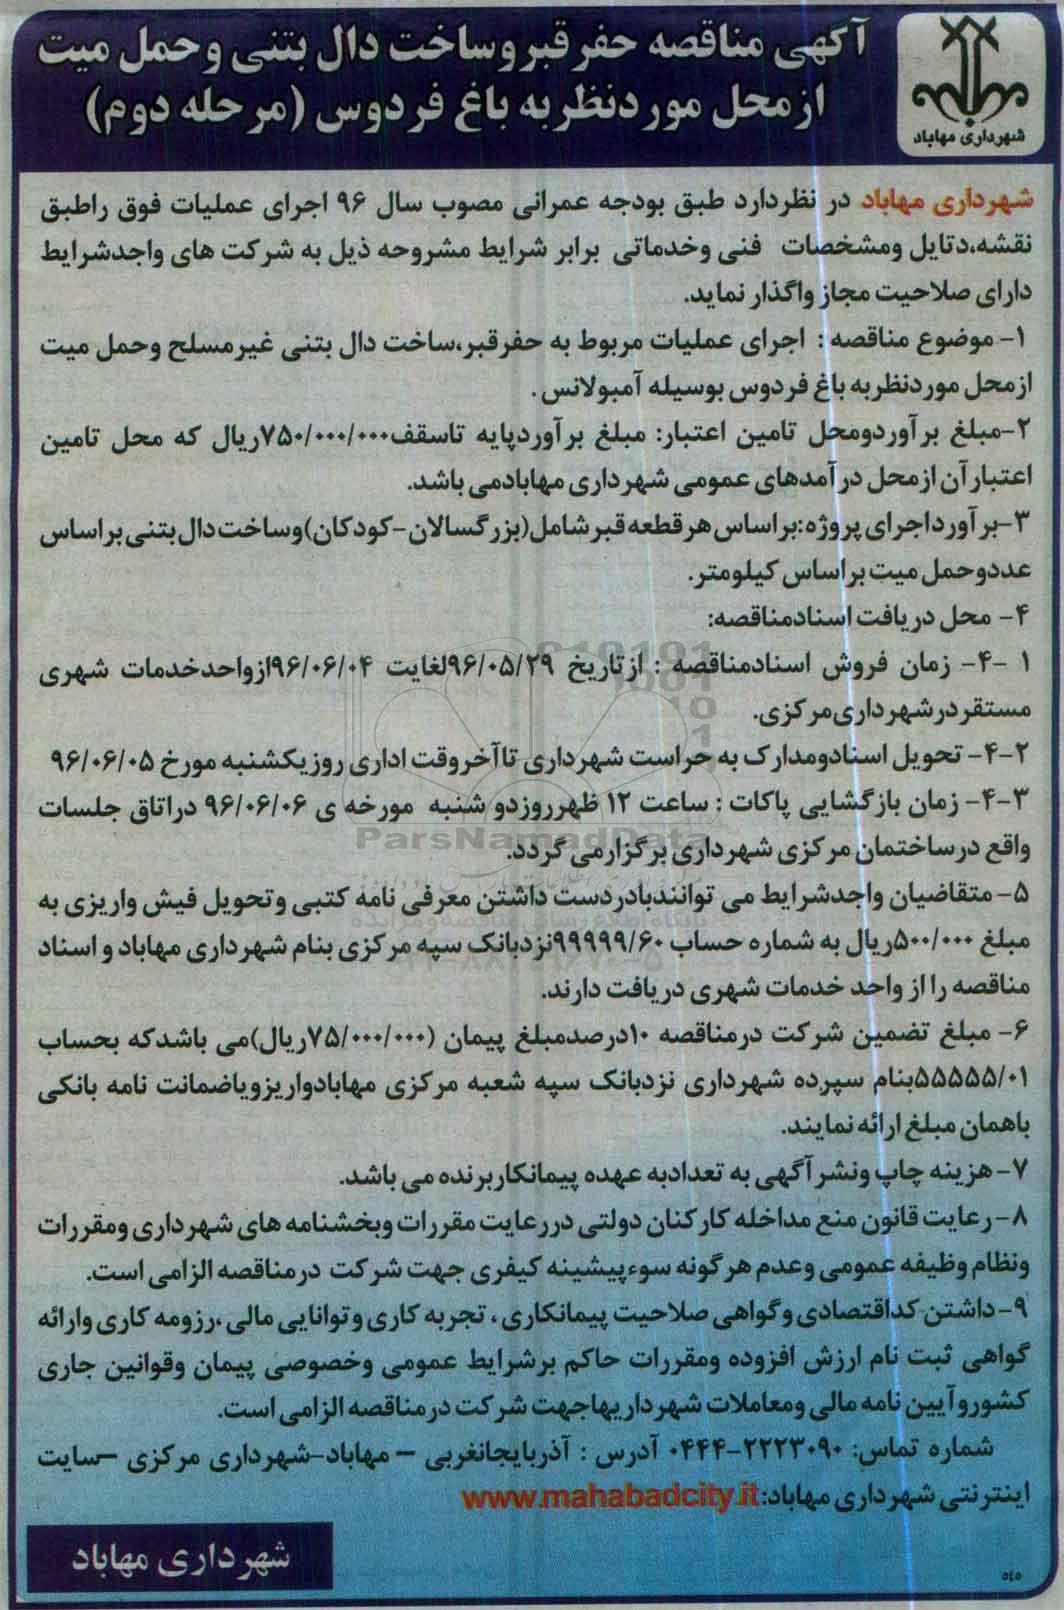 آگهی مناقصه حفرقبروساخت دال بتنی وحمل میت
ازمحل موردنظربه باغ فردوس (مرحله دوم)
شهرداری مهاباد
شهرداری مهاباد در نظردارد طبق بودجه عمرانی مصوب سال ۹۶ اجرای عملیات فوق راطبق
نقشه،دتایل ومشخصات فنی وخدماتی برابر شرایط مشروحه ذیل به شرکت های واجدشرایط
دارای صلاحیت مجاز واگذار نماید.
۱- موضوع مناقصه : اجرای عملیات مربوط به حفرقبر،ساخت دال بتنی غیرمسلح وحمل میت
ازمحل موردنظربه باغ فردوس بوسیله آمبولانس .
۲-مبلغ برآوردومحل تامین اعتبار: مبلغ برآوردپایه تاسقف۷۵۰/۰۰۰/۰۰۰ریال که محل تامین
اعتبارآن ازمحل درآمدهای عمومی شهرداری مهابادمی باشد.
۳-برآورداجرای پروژه:براساس هرقطعه قبرشامل(بزرگسالان-کودکان)وساخت دال بتنی براساس
عددوحمل میت براساس کیلومتر.
۴- محل دریافت اسنادمناقصه:
۱ -۴- زمان فروش اسنادمناقصه : ازتاریخ ۹۶/۰۵/۲۹لغایت ۹۶/۰۶/۰۴ازواحدخدمات شهری
مستقردرشهرداری‌مرکزی.
۴-۲- تحویل اسنادومدارک به حراست شهرداری تاآخروقت اداری روزیکشنبه مورخ ۹۶/۰۶/۰۵
۴-۳- زمان بازگشایی پاکات : ساعت ۱۲ ظهرروزدو شنبه مورخه ی ۹۶/۰۶/۰۶ دراتاق جلسات
واقع درساختمان مرکزی شهرداری برگزارمی گردد.
ParsNamadData
۵- متقاضیان واجدشرایط می توانندبادردست داشتن معرفی نامه کتبی وتحویل فیش واریزی به
مبلغ ۵۰۰/۰۰۰ریال به شماره حساب ۹۹۹۹۹/۶۰نزدبانک سپه مرکزی بنام شهرداری مهاباد و اسناد
مناقصه را از واحد خدمات شهری دریافت دارند.
۶- مبلغ تضمین شرکت درمناقصه ۱۰درصدمبلغ پیمان (۷۵/۰۰۰/۰۰۰ریال)می باشدکه بحساب
۵۵۵۵۵/۰۱بنام سپرده شهرداری نزدبانک سپه شعبه مرکزی مهابادواریزویاضمانت نامه بانکی
باهمان مبلغ ارائه نمایند.
۷- هزینه چاپ ونشرآگهی به تعدادبه عهده پیمانکاربرنده می باشد.
۸-رعایت قانون منع مداخله کارکنان دولتی دررعایت مقررات وبخشنامه های شهرداری ومقررات
ونظام وظیفه عمومی وعدم هرگونه سوءپیشینه کیفری جهت شرکت درمناقصه الزامی است.
۹-داشتن کداقتصادی وگواهی صلاحیت پیمانکاری ، تجربه کاری وتوانایی مالی ،رزومه کاری وارائه
گواهی ثبت نام ارزش افزوده ومقررات حاکم برشرایط عمومی وخصوصی پیمان وقوانین جاری
کشوروآیین نامه مالی ومعاملات شهرداریهاجهت شرکت درمناقصه الزامی است.
شماره تماس: ۲۲۲۳۰۹۰-۰۴۴۴ آدرس : آذربایجانغربی – مهاباد-شهرداری مرکزی –سایت
اینترنتی شهرداری مهاباد:www.mahabadcity.it
شهرداری مهاباد
۵۴۵